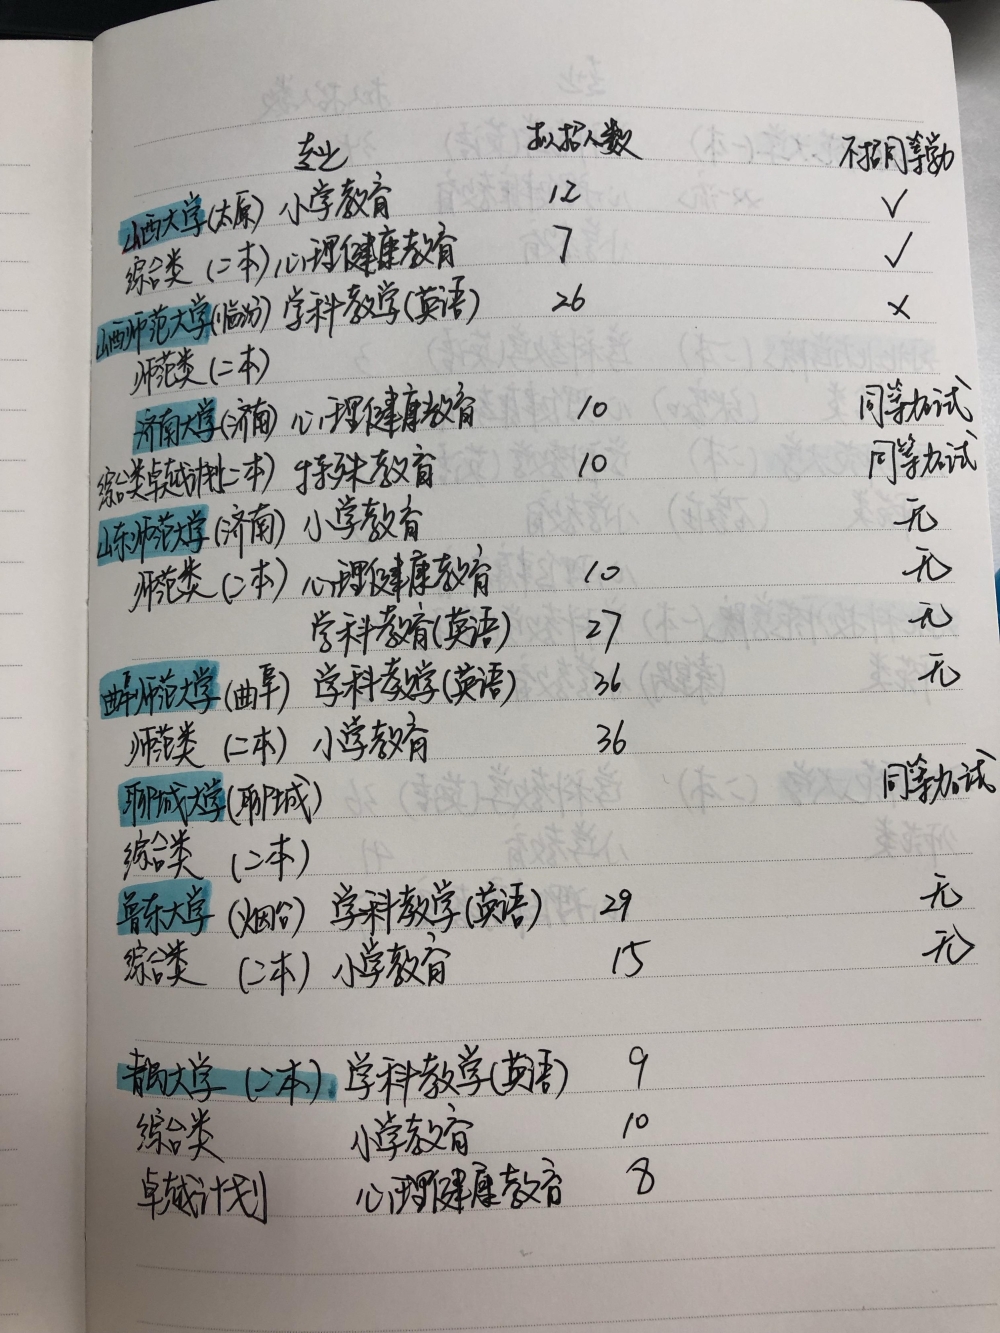 专业 拟招人数 不招同等学力
山西大学(太原) 小学教育 12 ✓
综合类 (二本) 心理健康教育 7 ✓
山西师范大学(临汾) 学科教学(英语) 26 ×
师范类(二本)
济南大学(济南) 心理健康教育 10 同等加试
综合类卓越计划(二本) 特殊教育 10 同等加试
山东师范大学(济南) 小学教育 无
师范类 (二本) 心理健康教育 10 无
学科教育(英语) 27 无
曲阜师范大学(曲阜) 学科教学(英语) 36 无
师范类 (二本) 小学教育 36
聊城大学(聊城) 同等加试
综合类 (二本)
鲁东大学 (烟台) 学科教学(英语) 29 无
综合类 (二本) 小学教育 15 无
青岛大学 (二本) 学科教学(英语) 9
综合类 小学教育 10
卓越计划 心理健康教育 8